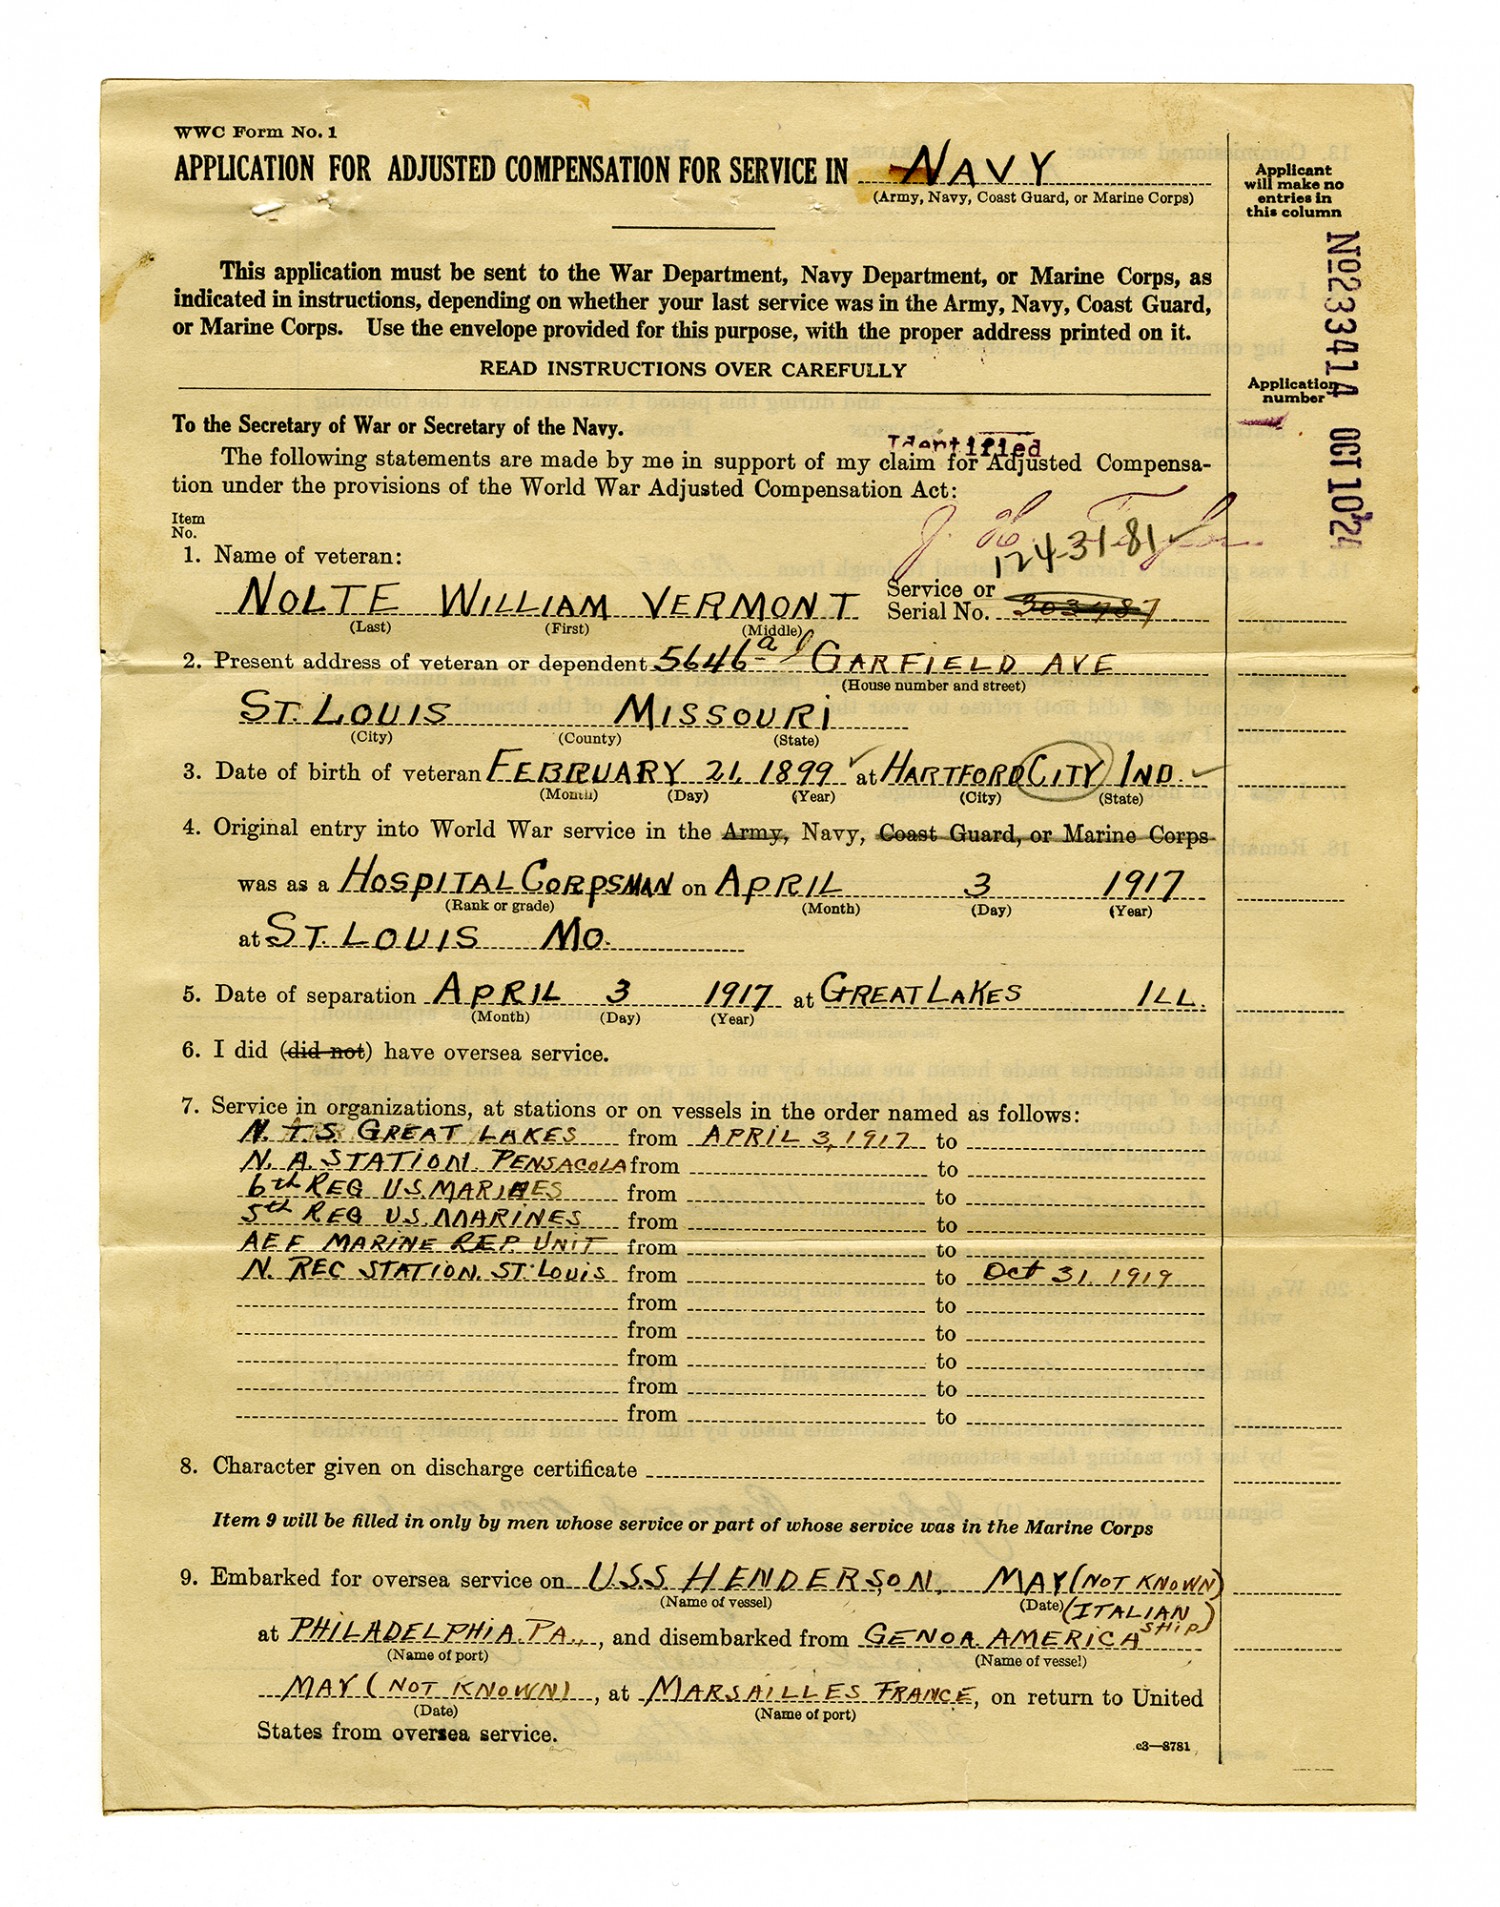 WWC Form No. 1
APPLICATION FOR ADJUSTED COMPENSATION FOR SERVICE IN NAVY
(Army, Navy, Coast Guard, or Marine Corps)
Applicant
will make no
entries in
this column
This application must be sent to the War Department, Navy Department, or Marine Corps, as
indicated in instructions, depending on whether your last service was in the Army, Navy, Coast Guard,
or Marine Corps. Use the envelope provided for this purpose, with the proper address printed on it.
READ INSTRUCTIONS OVER CAREFULLY
No 233414 OCT 10 '24
Application
number
To the Secretary of War or Secretary of the Navy.
Identified
The following statements are made by me in support of my claim for Adjusted Compensa-
tion under the provisions of the World War Adjusted Compensation Act:
Item
No.
124-31-81
1. Name of veteran:
NOLTE WILLIAM VERMONT Service or Serial No. 303987
(Last) (First) (Middle)
2. Present address of veteran or dependent 5646a GARFIELD AVE
(House number and street)
ST. LOUIS MISSOURI
(City) (County) (State)
3. Date of birth of veteran FEBRUARY 21, 1899 at HARTFORD CITY IND.
(Month) (Day) (Year) (City) (State)
4. Original entry into World War service in the Army, Navy, Coast Guard, or Marine Corps
was as a HOSPITAL CORPSMAN on APRIL 3 1917
(Rank or grade) (Month) (Day) (Year)
at ST. LOUIS MO.
5. Date of separation APRIL 3 1917 at GREAT LAKES ILL.
(Month) (Day) (Year)
6. I did (did not) have oversea service.
7. Service in organizations, at stations or on vessels in the order named as follows:
N. T.S. GREAT LAKES from APRIL 3, 1917 to
N. A. STATION PENSACOLA from to
6th REG U.S. MARINES from to
5th REG U.S. MARINES from to
AEF MARINE REP. UNIT from to
N. REC STATION. ST. LOUIS from to Oct 31. 1919
from to
from to
from to
from to
from to
8. Character given on discharge certificate
Item 9 will be filled in only by men whose service or part of whose service was in the Marine Corps
9. Embarked for oversea service on U.S.S. HENDERSON, MAY (NOT KNOWN)
(Name of vessel) (Date)
(ITALIAN SHIP)
at PHILADELPHIA. PA., and disembarked from GENOA. AMERICA
(Name of port) (Name of vessel)
MAY (NOT KNOWN), at MARSAILLES FRANCE, on return to United
(Date) (Name of port)
States from oversea service.
c3—8781